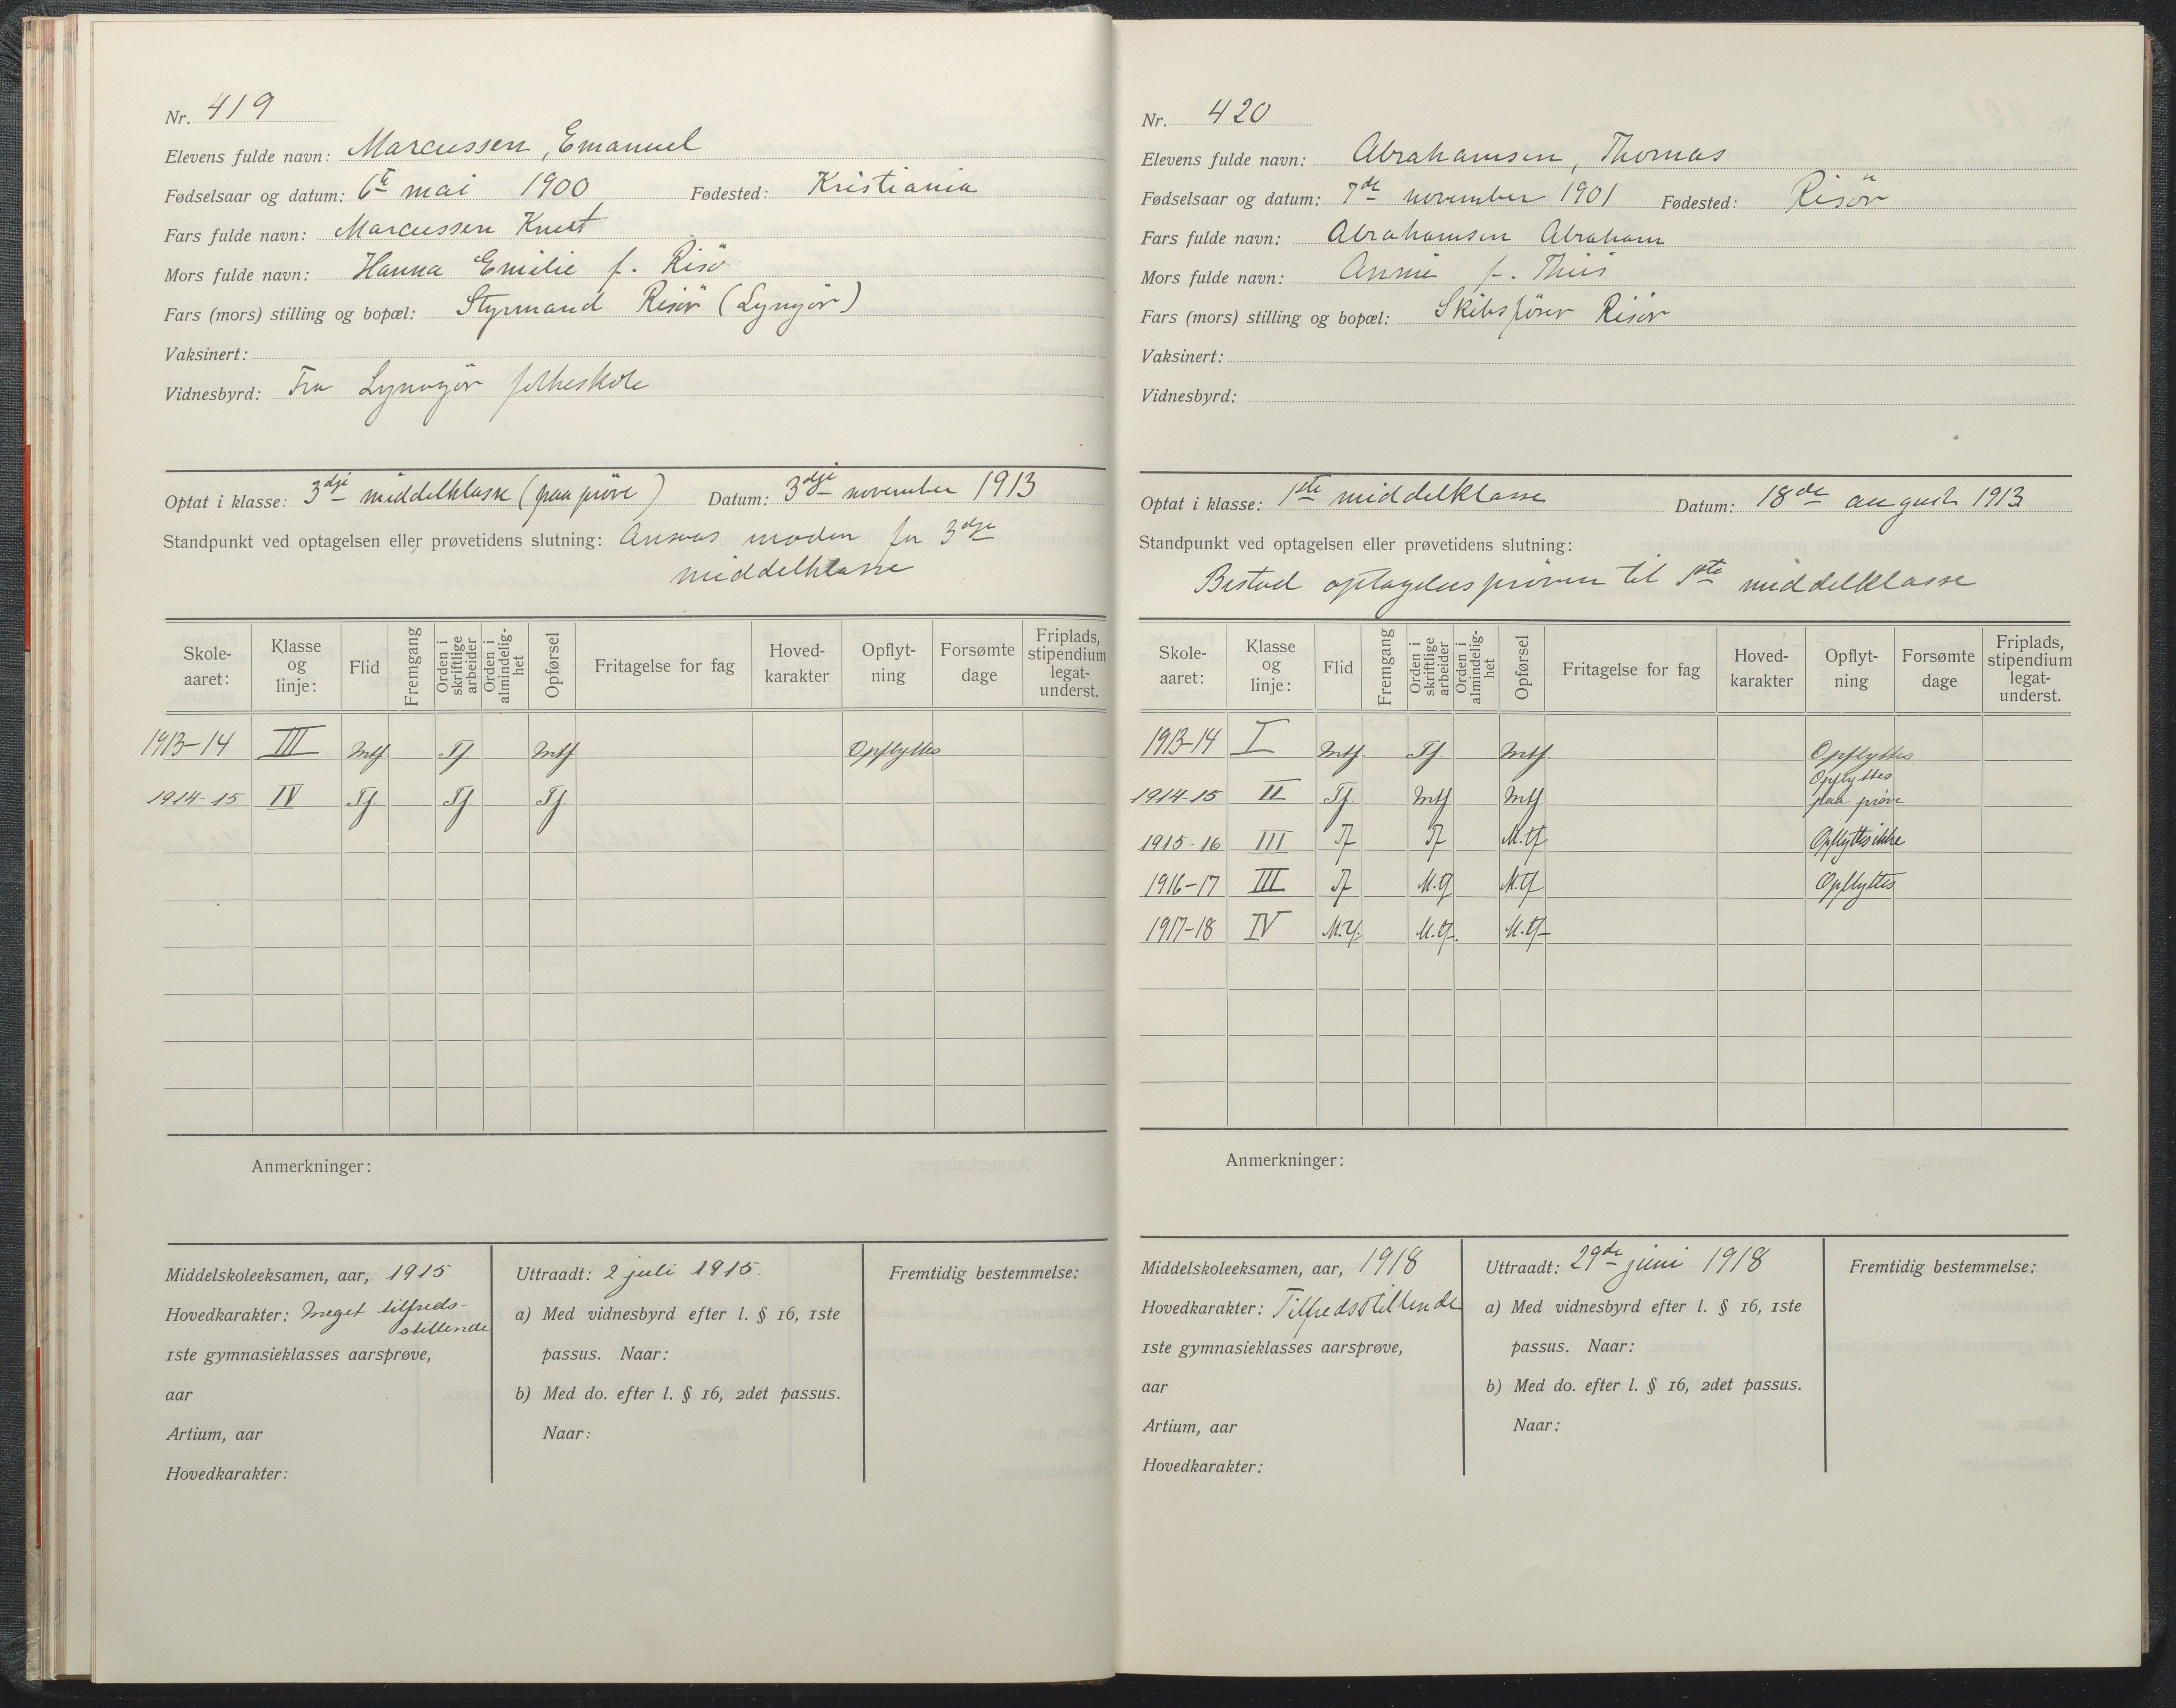 Nr. 419
Elevens fulde navn: Marcussen, Emanuel
Fødselsaar og datum: 6te mai 1900 Fødested: Kristiania
Fars fulde navn: Marcussen Knut
Mors fulde navn: Hanna Emilie f. Risö
Fars (mors) stilling og bopæl: Styrmand Risör (Lyngör)
Vaksinert:
Vidnesbyrd: Fra Lyngör folkeskole
Optat i klasse: 3dje middelklasse (paa pröve) Datum: 3dje november 1913
Standpunkt ved optagelsen eller prøvetidens slutning: Ansees moden for 3dje
middelklasse
Skole-aaret: Klasse og linje: Flid Fremgang Orden i skriftlige arbeider Orden i almindelig-het Opførsel Fritagelse for fag Hoved-karakter Opflyt-ning Forsømte dage Friplads, stipendium legat-underst.
1913-14 III Mtf Tf Mtf Opflyttes
1914-15 IV Tf Tf Tf
Anmerkninger:
Middelskoleeksamen, aar, 1915
Hovedkarakter: Meget tilfreds-
stillende
1ste gymnasieklasses aarsprøve,
aar
Artium, aar
Hovedkarakter:
Uttraadt: 2 juli 1915.
a) Med vidnesbyrd efter l. § 16, 1ste
passus. Naar:
b) Med do. efter l. § 16, 2det passus.
Naar:
Fremtidig bestemmelse:
Nr. 420
Elevens fulde navn: Abrahamsen, Thomas
Fødselsaar og datum: 7de november 1901 Fødested: Risör
Fars fulde navn: Abrahamsen Abraham
Mors fulde navn: Annie f. Thiis
Fars (mors) stilling og bopæl: Skibsförer Risör
Vaksinert:
Vidnesbyrd:
Optat i klasse: 1ste middelklasse Datum: 18de august 1913
Standpunkt ved optagelsen eller prøvetidens slutning:
Bestod optagelsespröven til 1ste middelklasse
Skole-aaret: Klasse og linje: Flid Fremgang Orden i skriftlige arbeider Orden i almindelig-het Opførsel Fritagelse for fag Hoved-karakter Opflyt-ning Forsømte dage Friplads, stipendium legat-underst.
1913-14 I Mtf. Tf. Mtf. Opflyttes
1914-15 II Tf. Mtf Mtf Opflyttes paa pröve
1915-16 III Tf Tf M.tf Opflyttes ikke
1916-17 III Tf M.tf M.tf Opflyttes
1917-18 IV M.tf. M.tf. M.tf
Anmerkninger:
Middelskoleeksamen, aar, 1918
Hovedkarakter: Tilfredsstillende
1ste gymnasieklasses aarsprøve,
aar
Artium, aar
Hovedkarakter:
Uttraadt: 29de juni 1918
a) Med vidnesbyrd efter l. § 16, 1ste
passus. Naar:
b) Med do. efter l. § 16, 2det passus.
Naar:
Fremtidig bestemmelse: